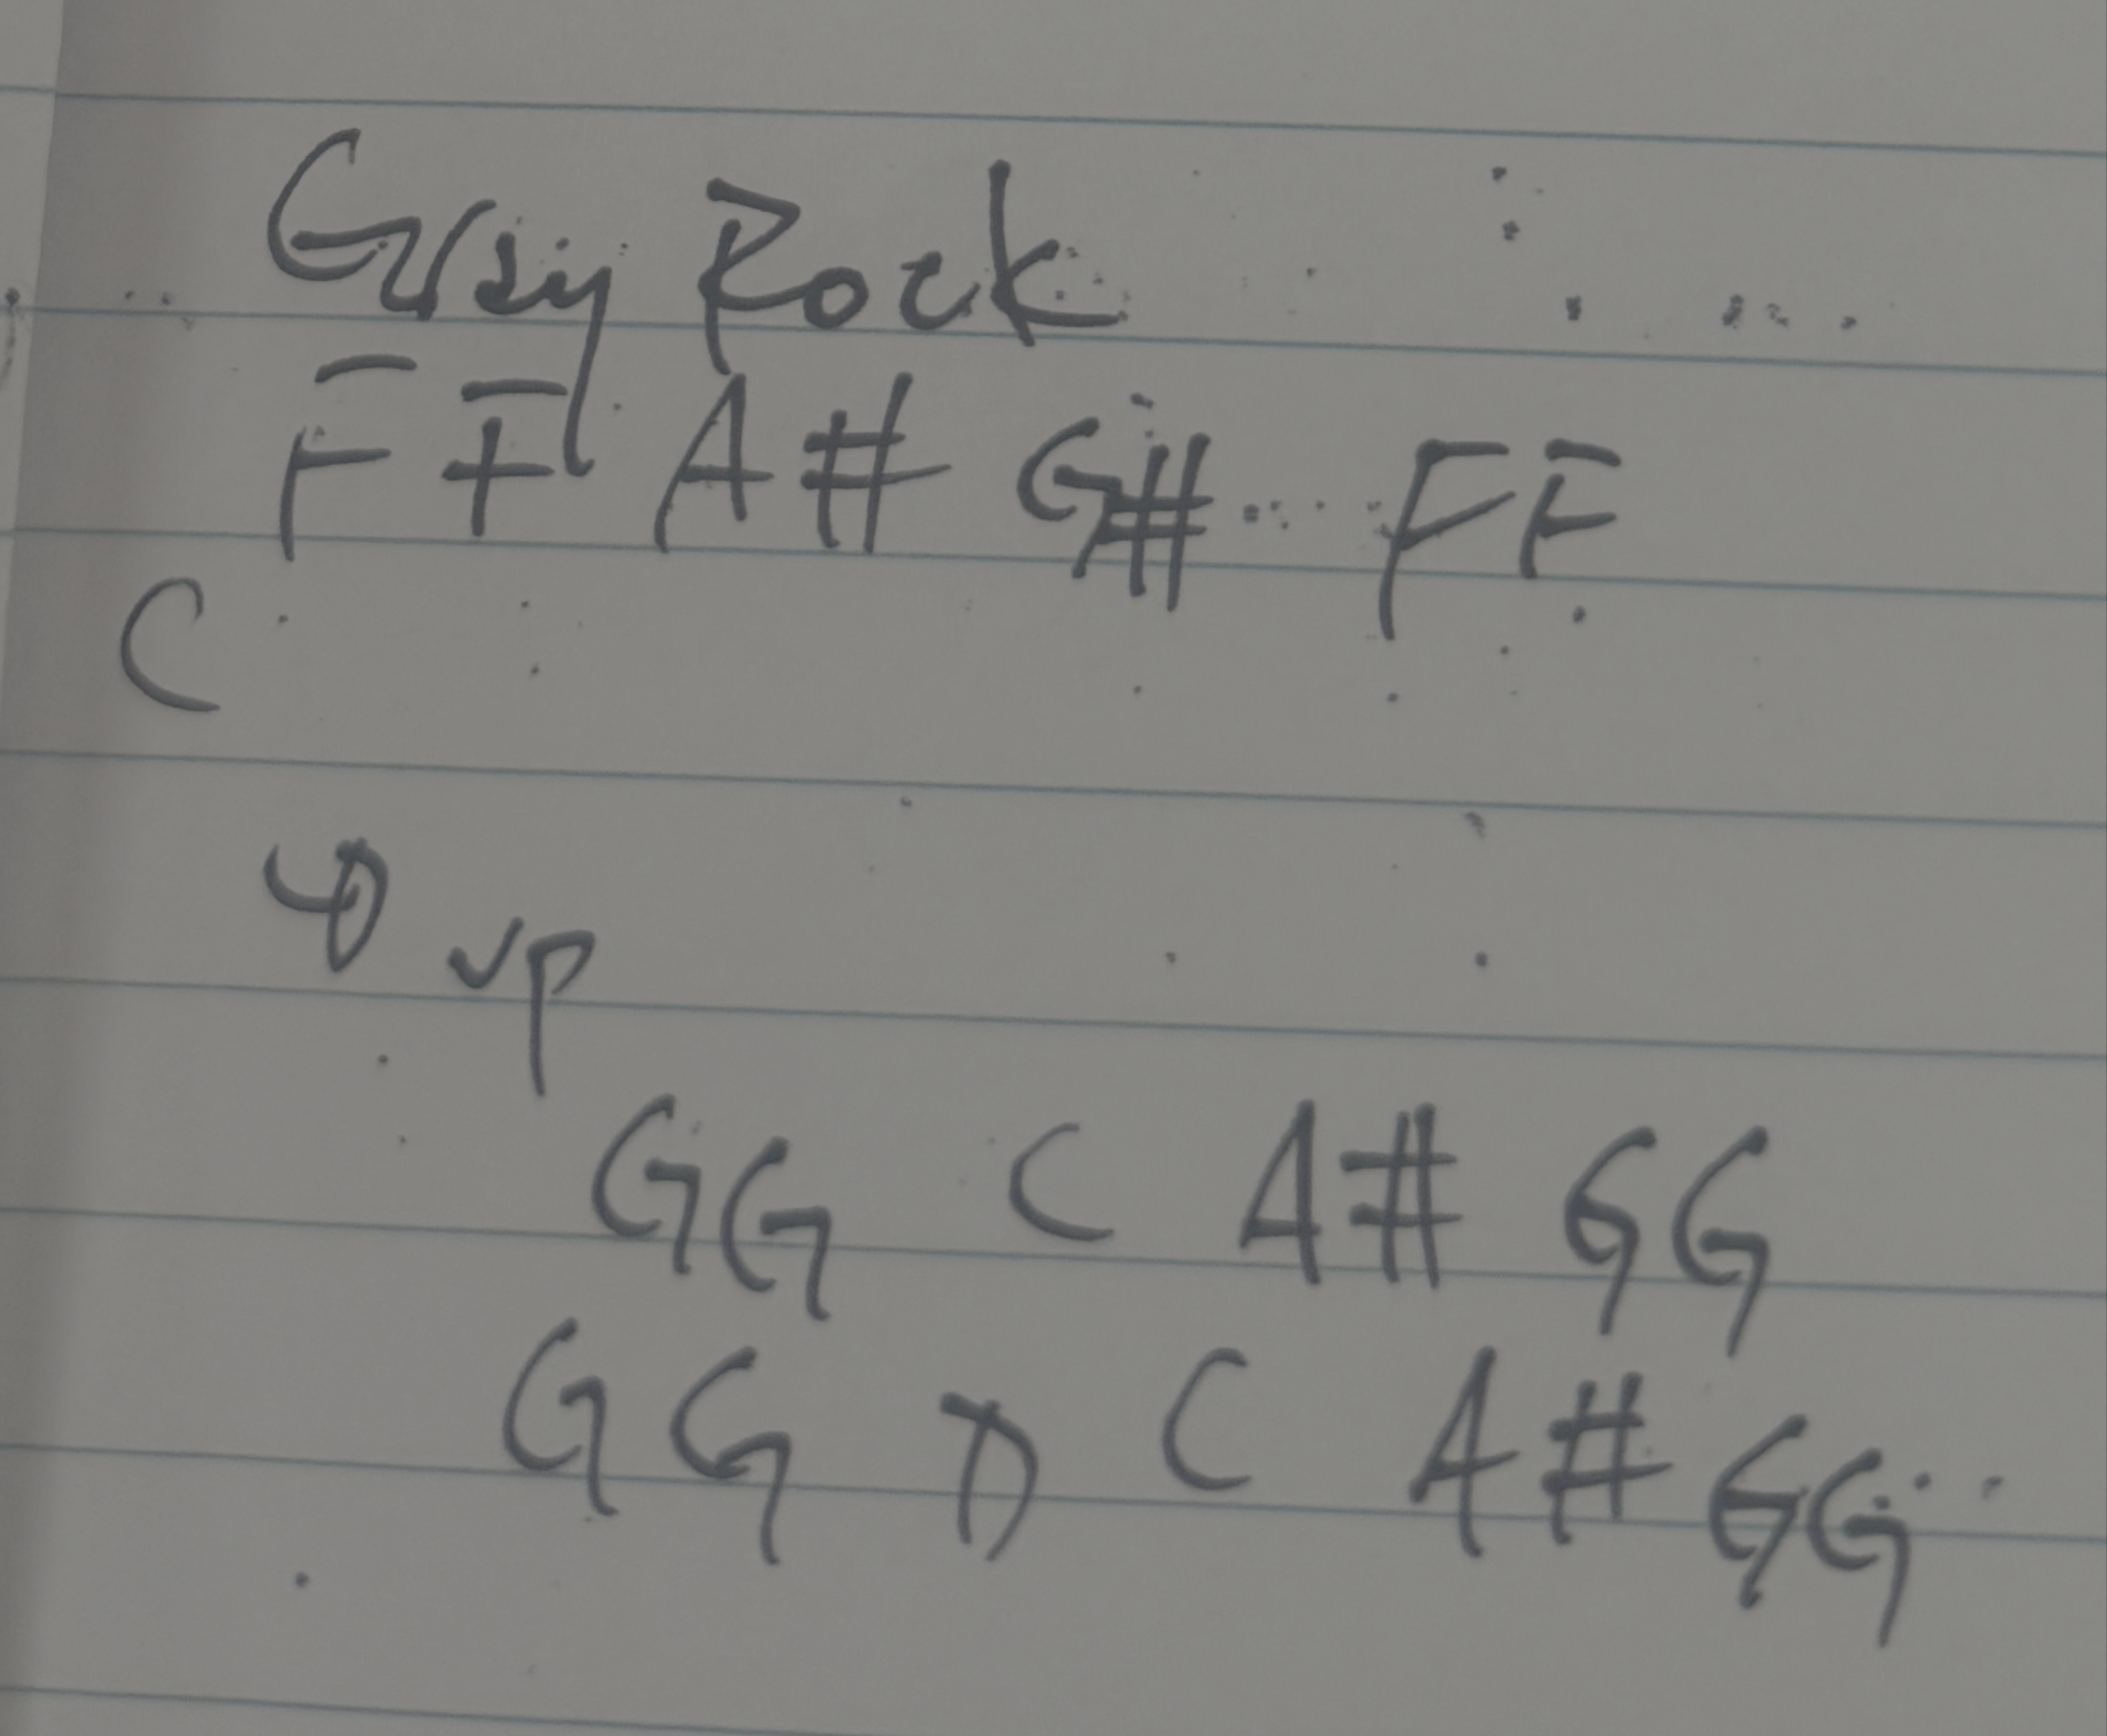 Easy Rock
F F A# G# FF
C
up
GG C A# GG
GG D C A# GG